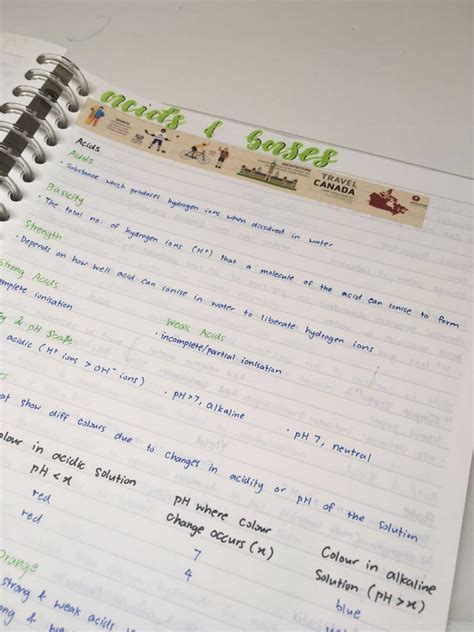 acids & bases
TRAVEL
CANADA
Acids
Acids
• Substance which produces hydrogen ions when dissolved in water
Basicity
• The total no. of hydrogen ions (H⁺) that a molecule of the acid can ionise to form
Strength
• Depends on how well acid can ionise in water to liberate hydrogen ions
Strong Acids
Weak Acids
complete ionisation
• incomplete/partial ionisation
& pH Scale
acidic (H⁺ ions > OH⁻ ions)
• pH>7, alkaline
• pH 7, neutral
show diff colours due to changes in acidity or pH of the solution
colour in acidic solution
pH < x
pH where colour
change occurs (x)
Colour in alkaline
solution (pH > x)
red
7
blue
red
4
strong & weak acids
& weak